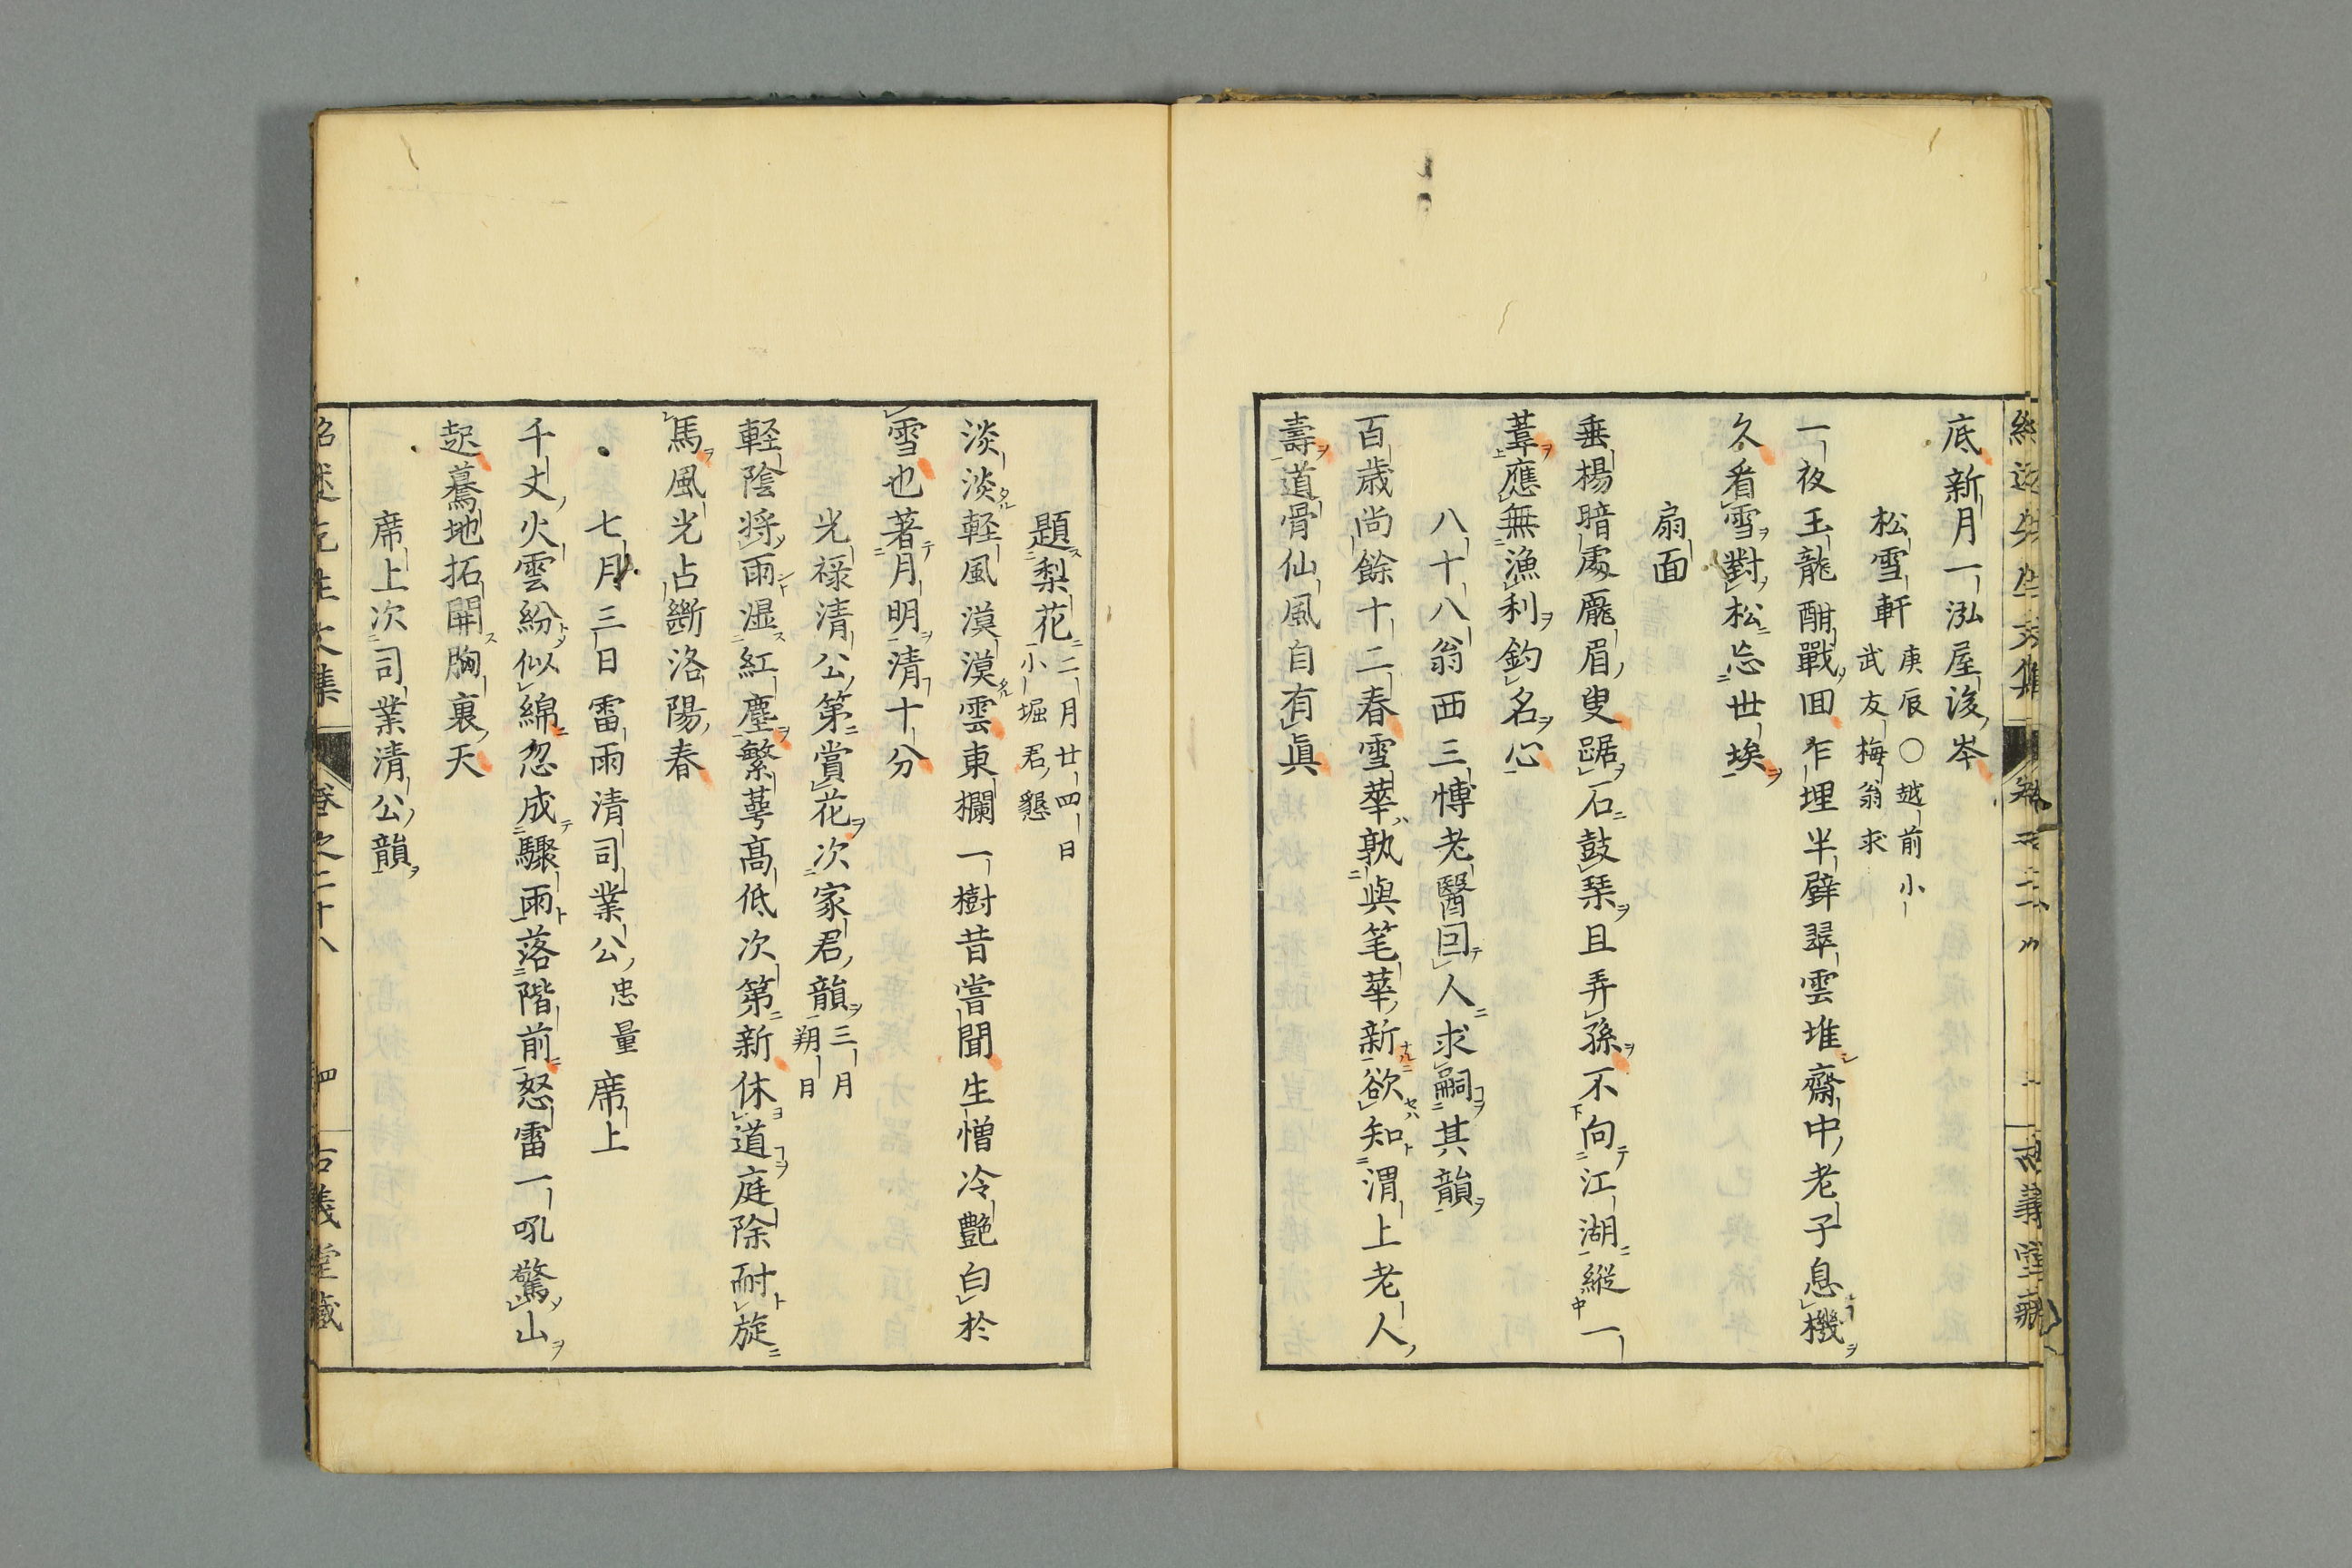 底新月一泓屋後岑
松雪軒 庚辰〇越前小
武友梅翁求
一夜玉龍酣戰回乍埋半壁翠雲堆齋中老子息機
久看雪對松忘世埃
扇面
垂楊暗處龐眉叟踞石鼓琹且弄孫不向江湖縱一
葦應無漁利釣名心
八十八翁西三博老醫回人求嗣其韻
百歳尚餘十二春雪華孰與笔華新欲知渭上老人
壽道骨仙風自有眞
題梨花 二月廿四日
小堀君懇
淡淡輕風漠漠雲東欄一樹昔嘗聞生憎冷艷白於
雪也著月明清十分
光祿清公第賞花次家君韻 三月
朔日
軽陰将雨湿紅塵繁蕚髙低次第新休道庭除耐旋
馬風光占斷洛陽春
七月三日雷雨清司業公忠量席上
千丈火雲紛似綿忽成驟雨落階前怒雷一吼驚山
起驀地拓開胸裏天
席上次司業清公韻
紹述先生文集 卷之二十八 四 古義堂藏